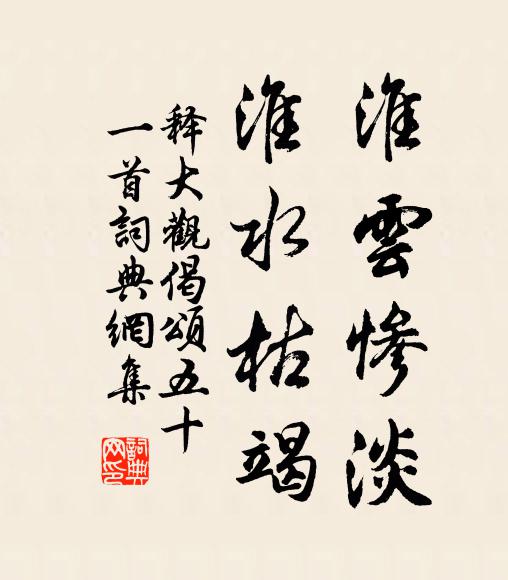 淮雲惨淡
淮水枯竭
释大觀偈頌五十
一首詞典網集
詞典網印